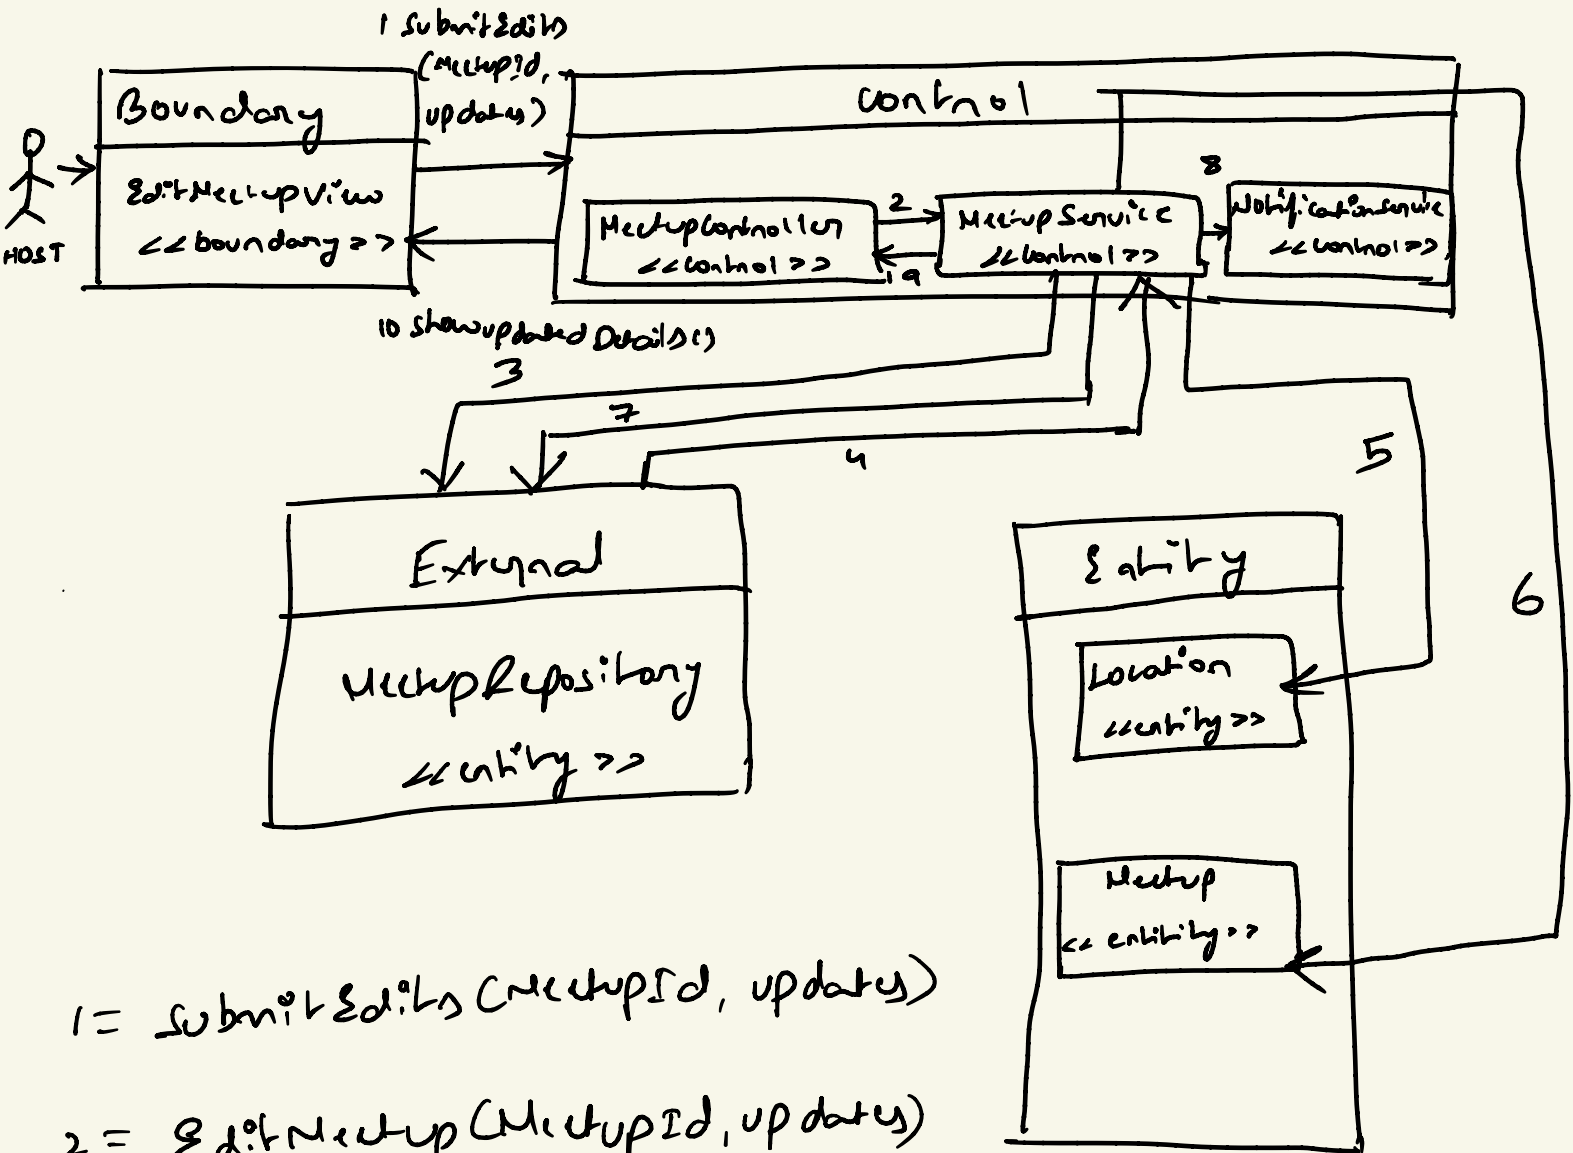 1 submitEdits
(MeetupId,
updates)
Boundary
control
EditMeetupView
<<boundary>>
HOST
MeetupController
<<control>>
2
9
MeetupService
<<control>>
8
NotificationService
<<control>>
10 showupdatedDetails()
3
7
4
5
6
External
MeetupRepository
<<entity>>
Entity
Location
<<entity>>
Meetup
<<entitity>>
1= submitEdits (MeetupId, updates)
2= EditMeetup (MeetupId, updates)